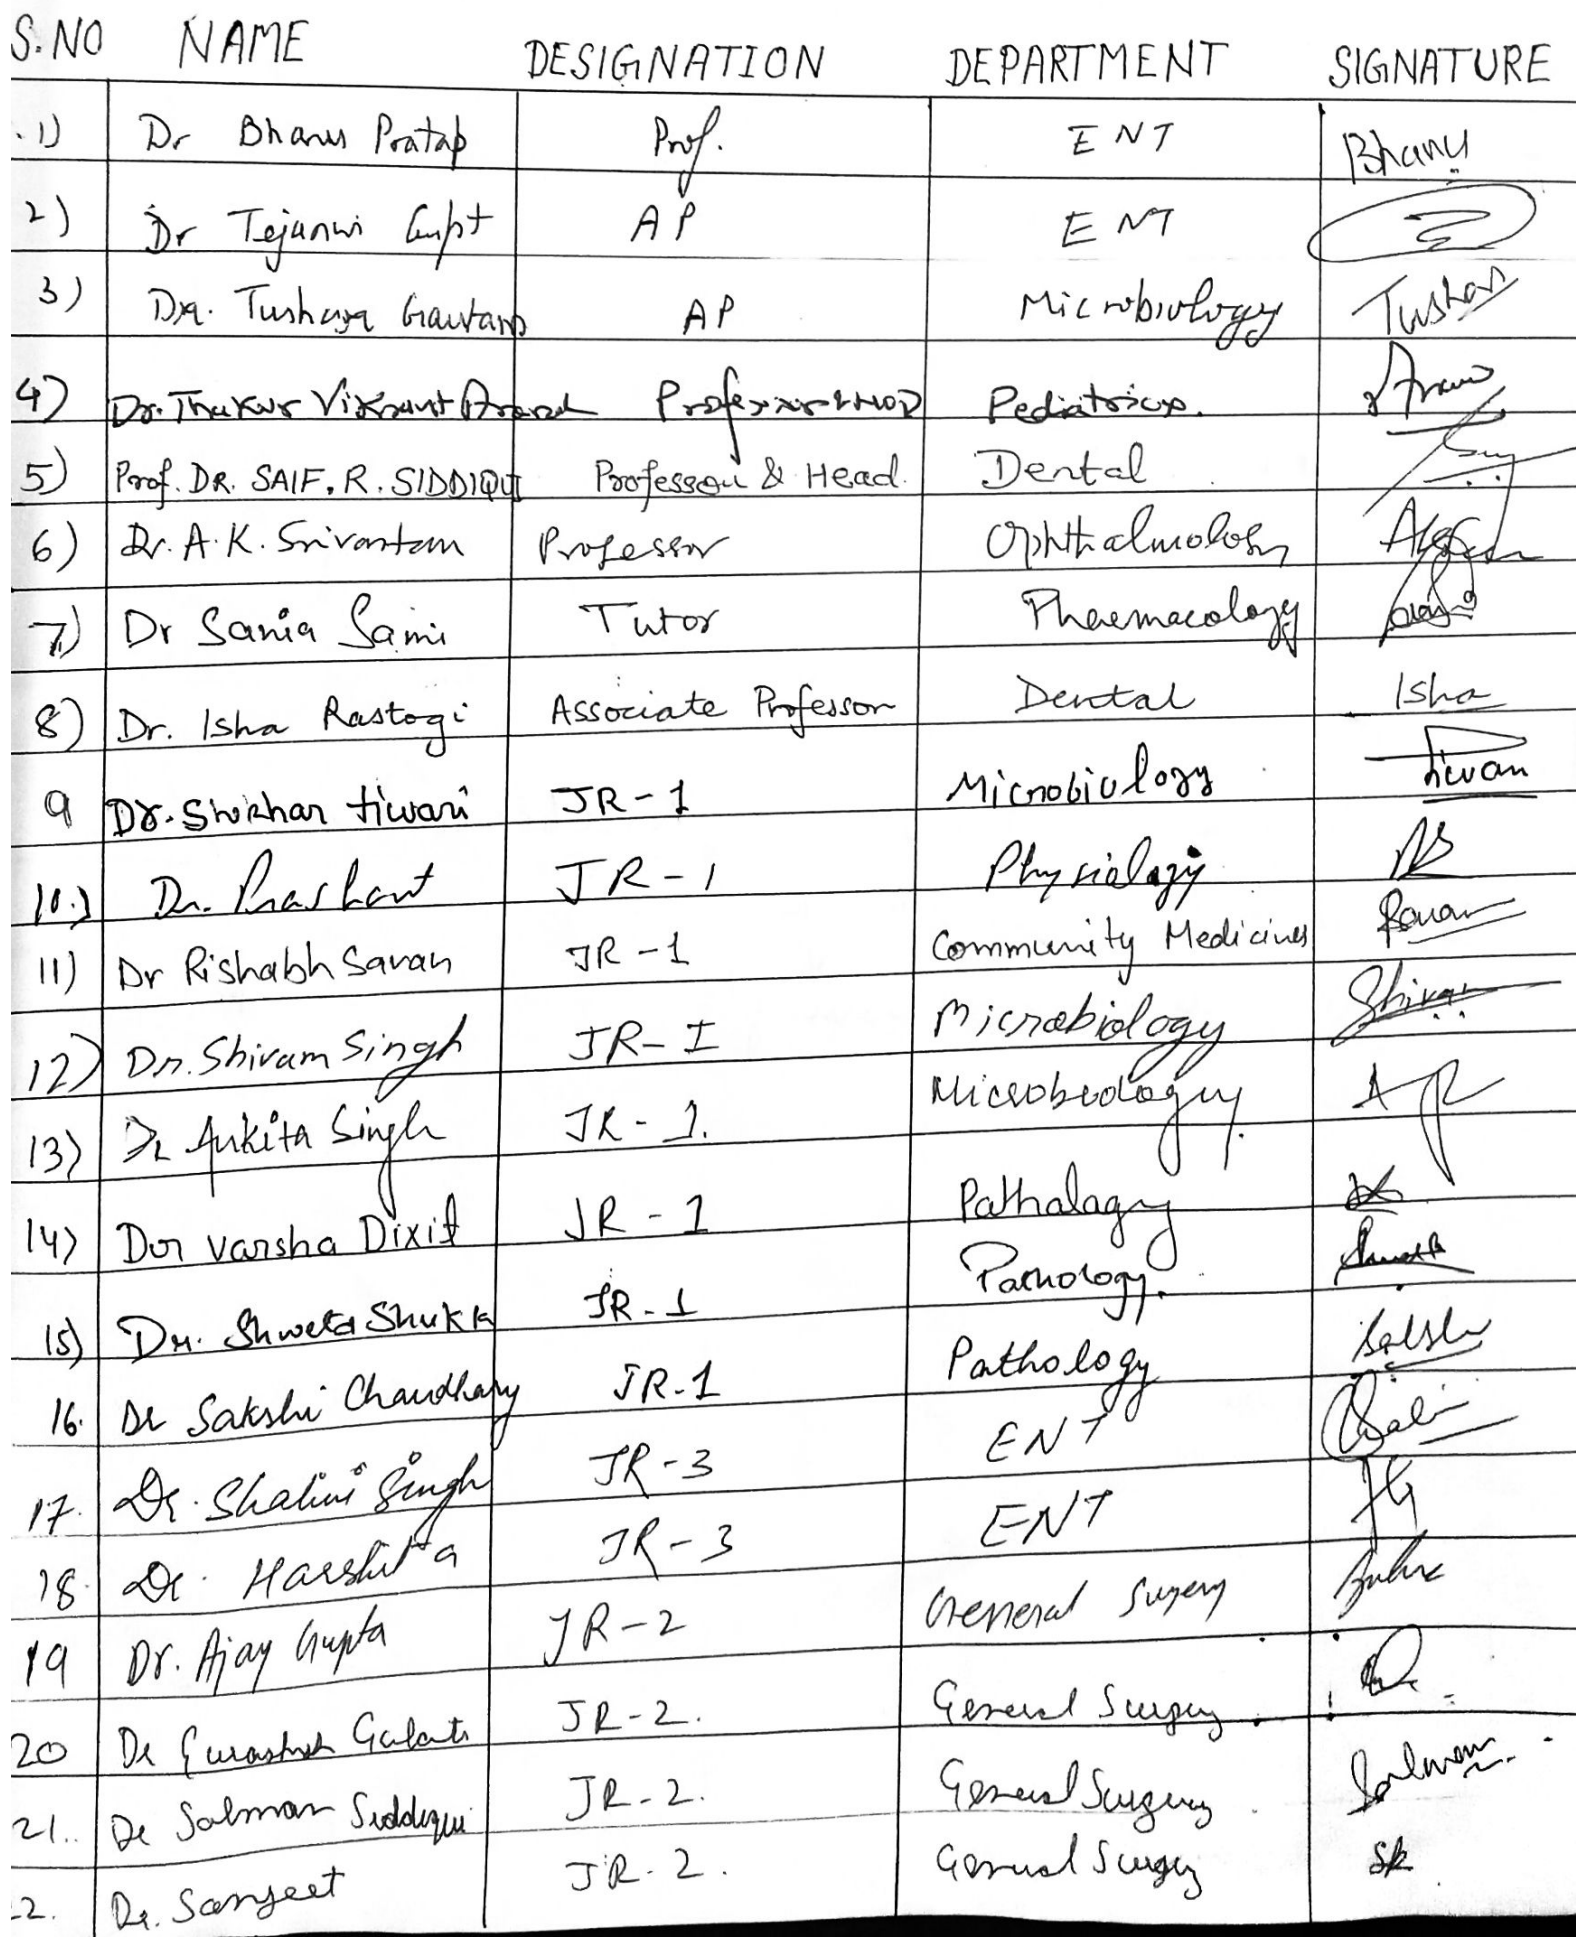 S.NO NAME DESIGNATION DEPARTMENT SIGNATURE
1) Dr Bhanu Pratap Prof. ENT Bhanu
2) Dr Gupt AP ENT
3) Dr. Tushar Gautam AP Microbiology Tushar
4) Dr. Thakur Vikrant Anand Professor & HOD Pediatrics.
5) Prof. DR. SAIF. R. SIDDIQUI Professor & Head. Dental
6) Dr. A.K. Srivastava Professor Ophthalmology
7) Dr Sania Sami Tutor Pharmacology
8) Dr. Isha Rastogi Associate Professor Dental Isha
9 Dr. Shikhar tiwari JR-1 Microbiology tiwari
10.) Dr. Prashant JR-1 Physiology
11) Dr Rishabh Saran JR-1 Community Medicines
12) Dr. Shivam Singh JR-I Microbiology Shivam
13) Dr Ankita Singh JR-1. Microbiology
14) Dr varsha Dixit JR-1 Pathalagy
15) Dr. Shweta Shukla JR-1 Pathology.
16. Dr Sakshi Chaudhary JR-1 Pathology
17. Dr. Shalini Singh JR-3 ENT
18. Dr. Harshita JR-3 ENT
19 Dr. Ajay Gupta JR-2 General Surgery
20 Dr Gulati JR-2. General Surgery
21.. Dr Salman Siddiqui JR-2. General Surgery Salman
2. Dr. Sanjeet JR-2. General Surgery SK